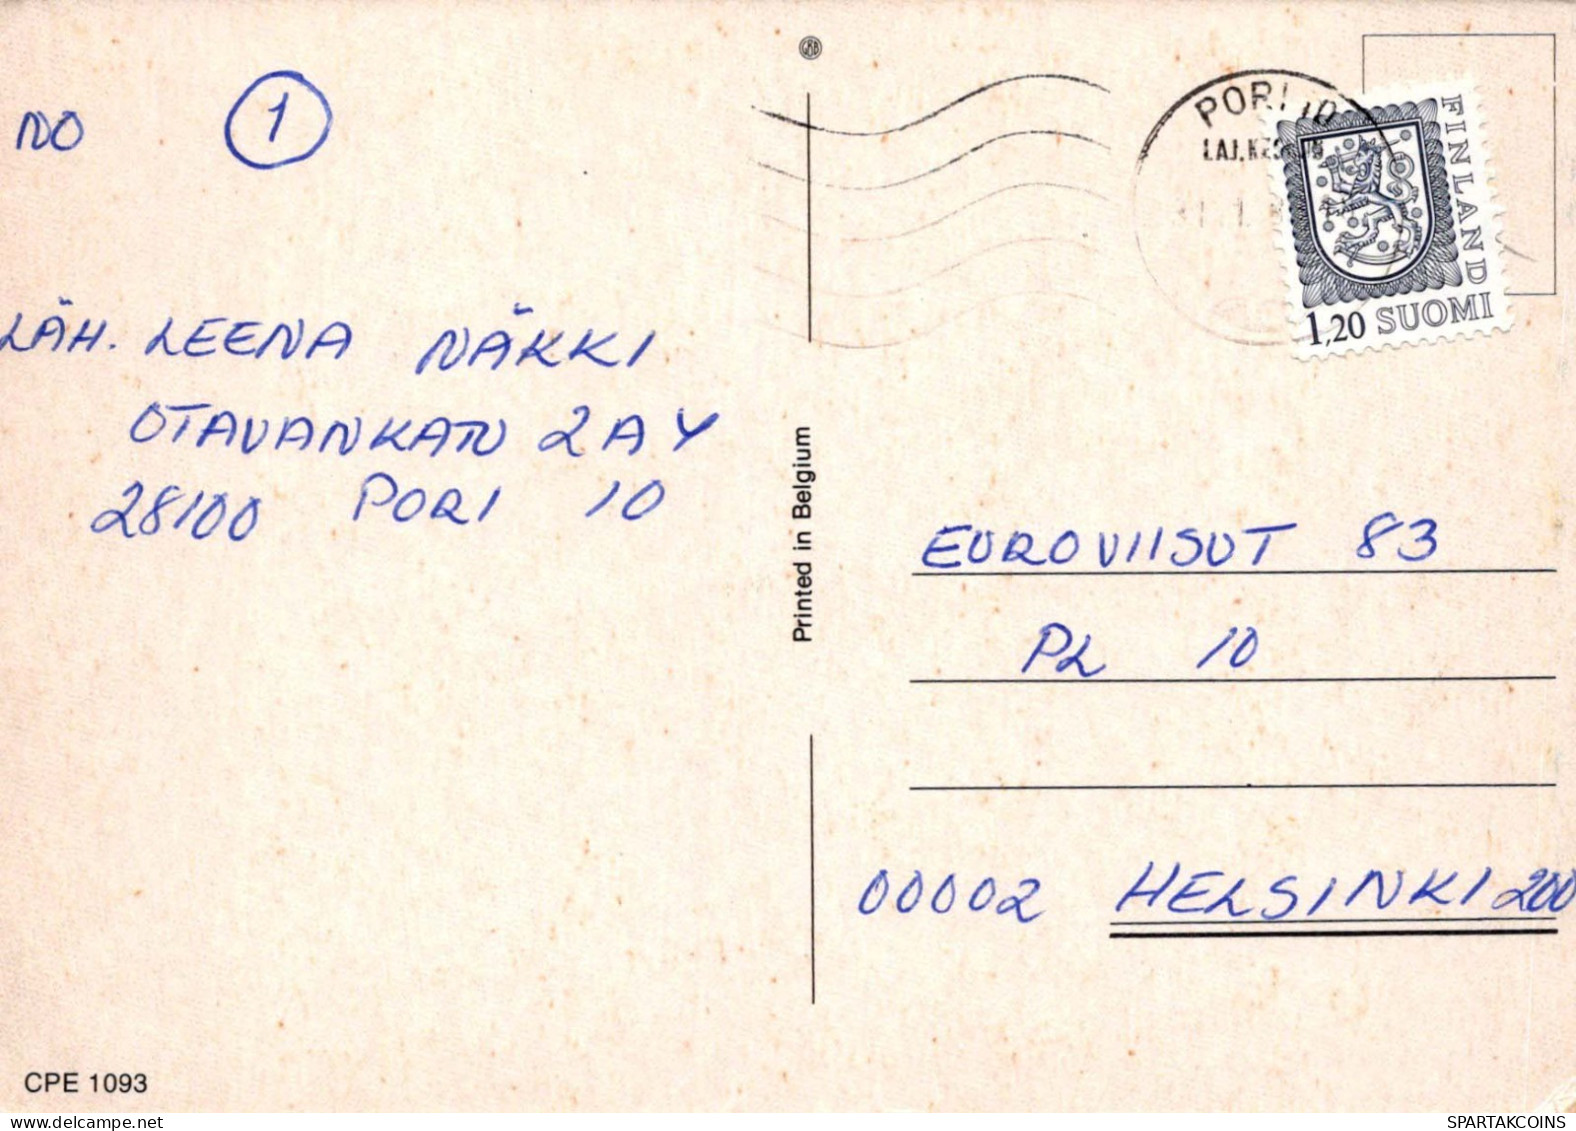 NO 1
LÄH. LEENA NÄKKI
OTAVANKATU 2 A Y
28100 PORI 10
CPE 1093
GBB
Printed in Belgium
PORI 10
FINLAND
1,20 SUOMI
EUROVIISUT 83
PL 10
00002 HELSINKI 200
SPARTAKCOINS